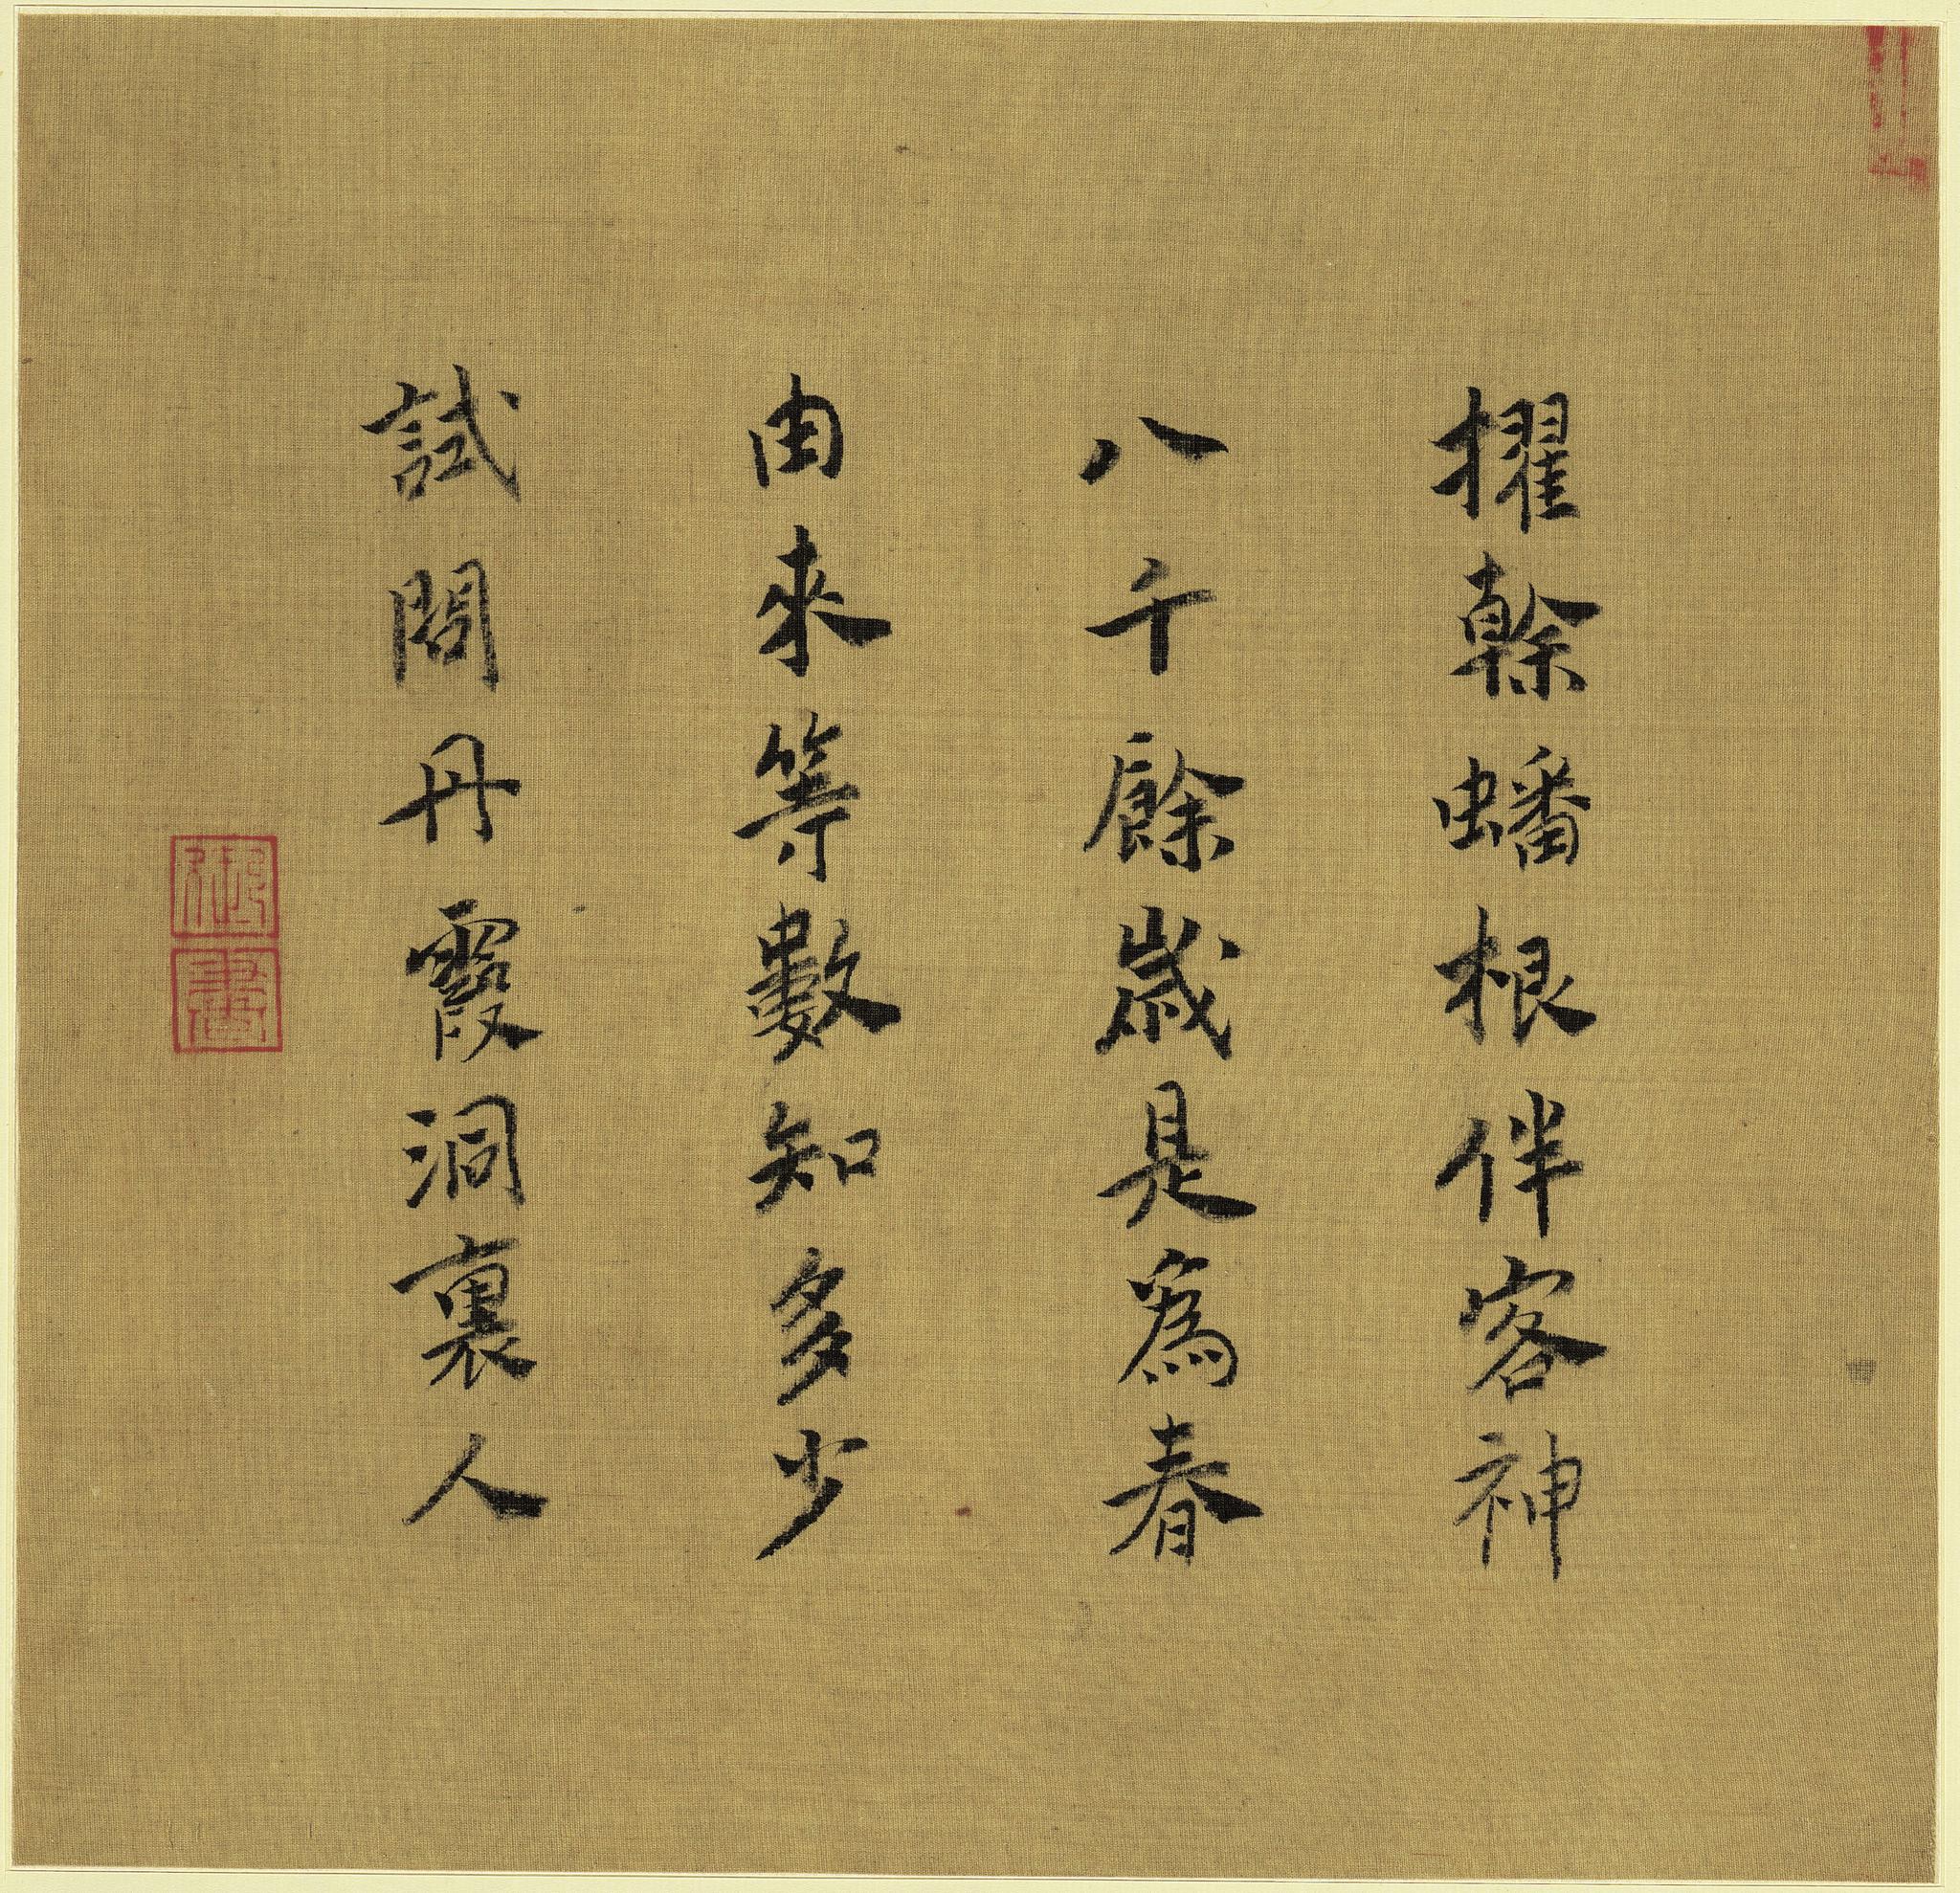 擢榦蟠根伴客神
八千餘歲是爲春
由來等數知多少
試問丹霞洞裏人
御書